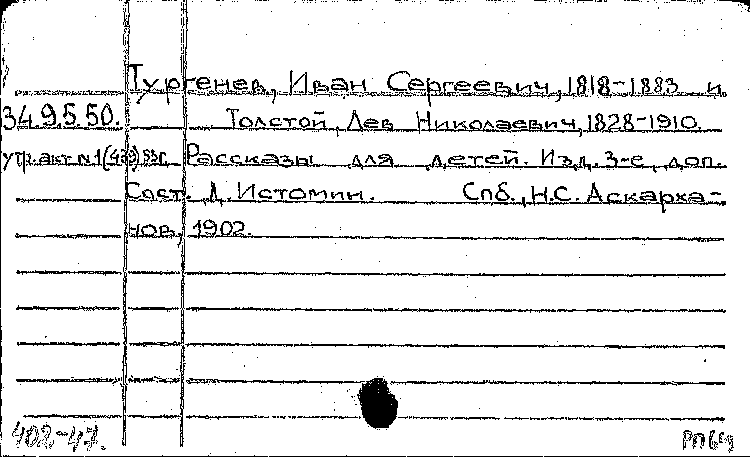 Тургенев, Иван Сергеевич, 1818-1883 и
34.9.5.50. Толстой, Лев Николаевич, 1828-1910.
утр. акт №1 Рассказы для детей. Изд. 3-е, доп.
Сост. Д. Истомин. Спб., Н.С. Аскарха-
нов, 1902.
402-47.